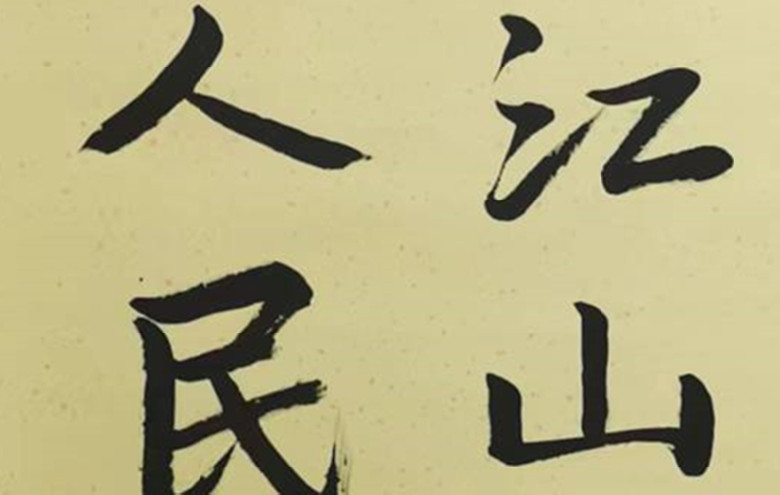 江山
人民